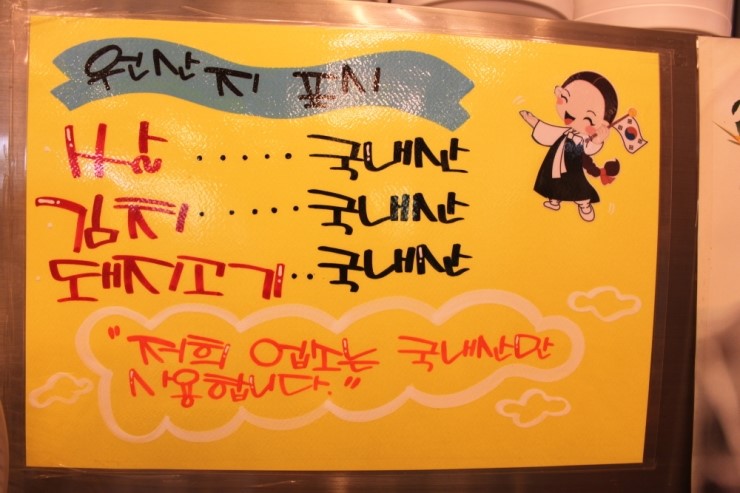 원산지 표시
쌀 ..... 국내산
김치 ..... 국내산
돼지고기 .. 국내산
"저희 업소는 국내산만
사용합니다."